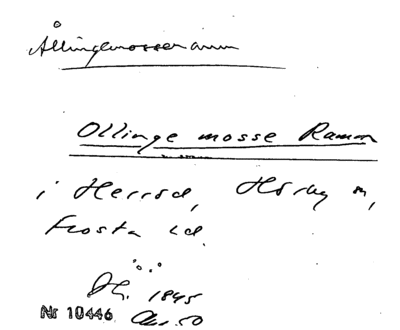 Ållingemosseramm
Ollinge mosse Ramm
i Herrod, Hörby sn,
Frosta hd.
Dh. 1845
Nr 10446 Avs. 50